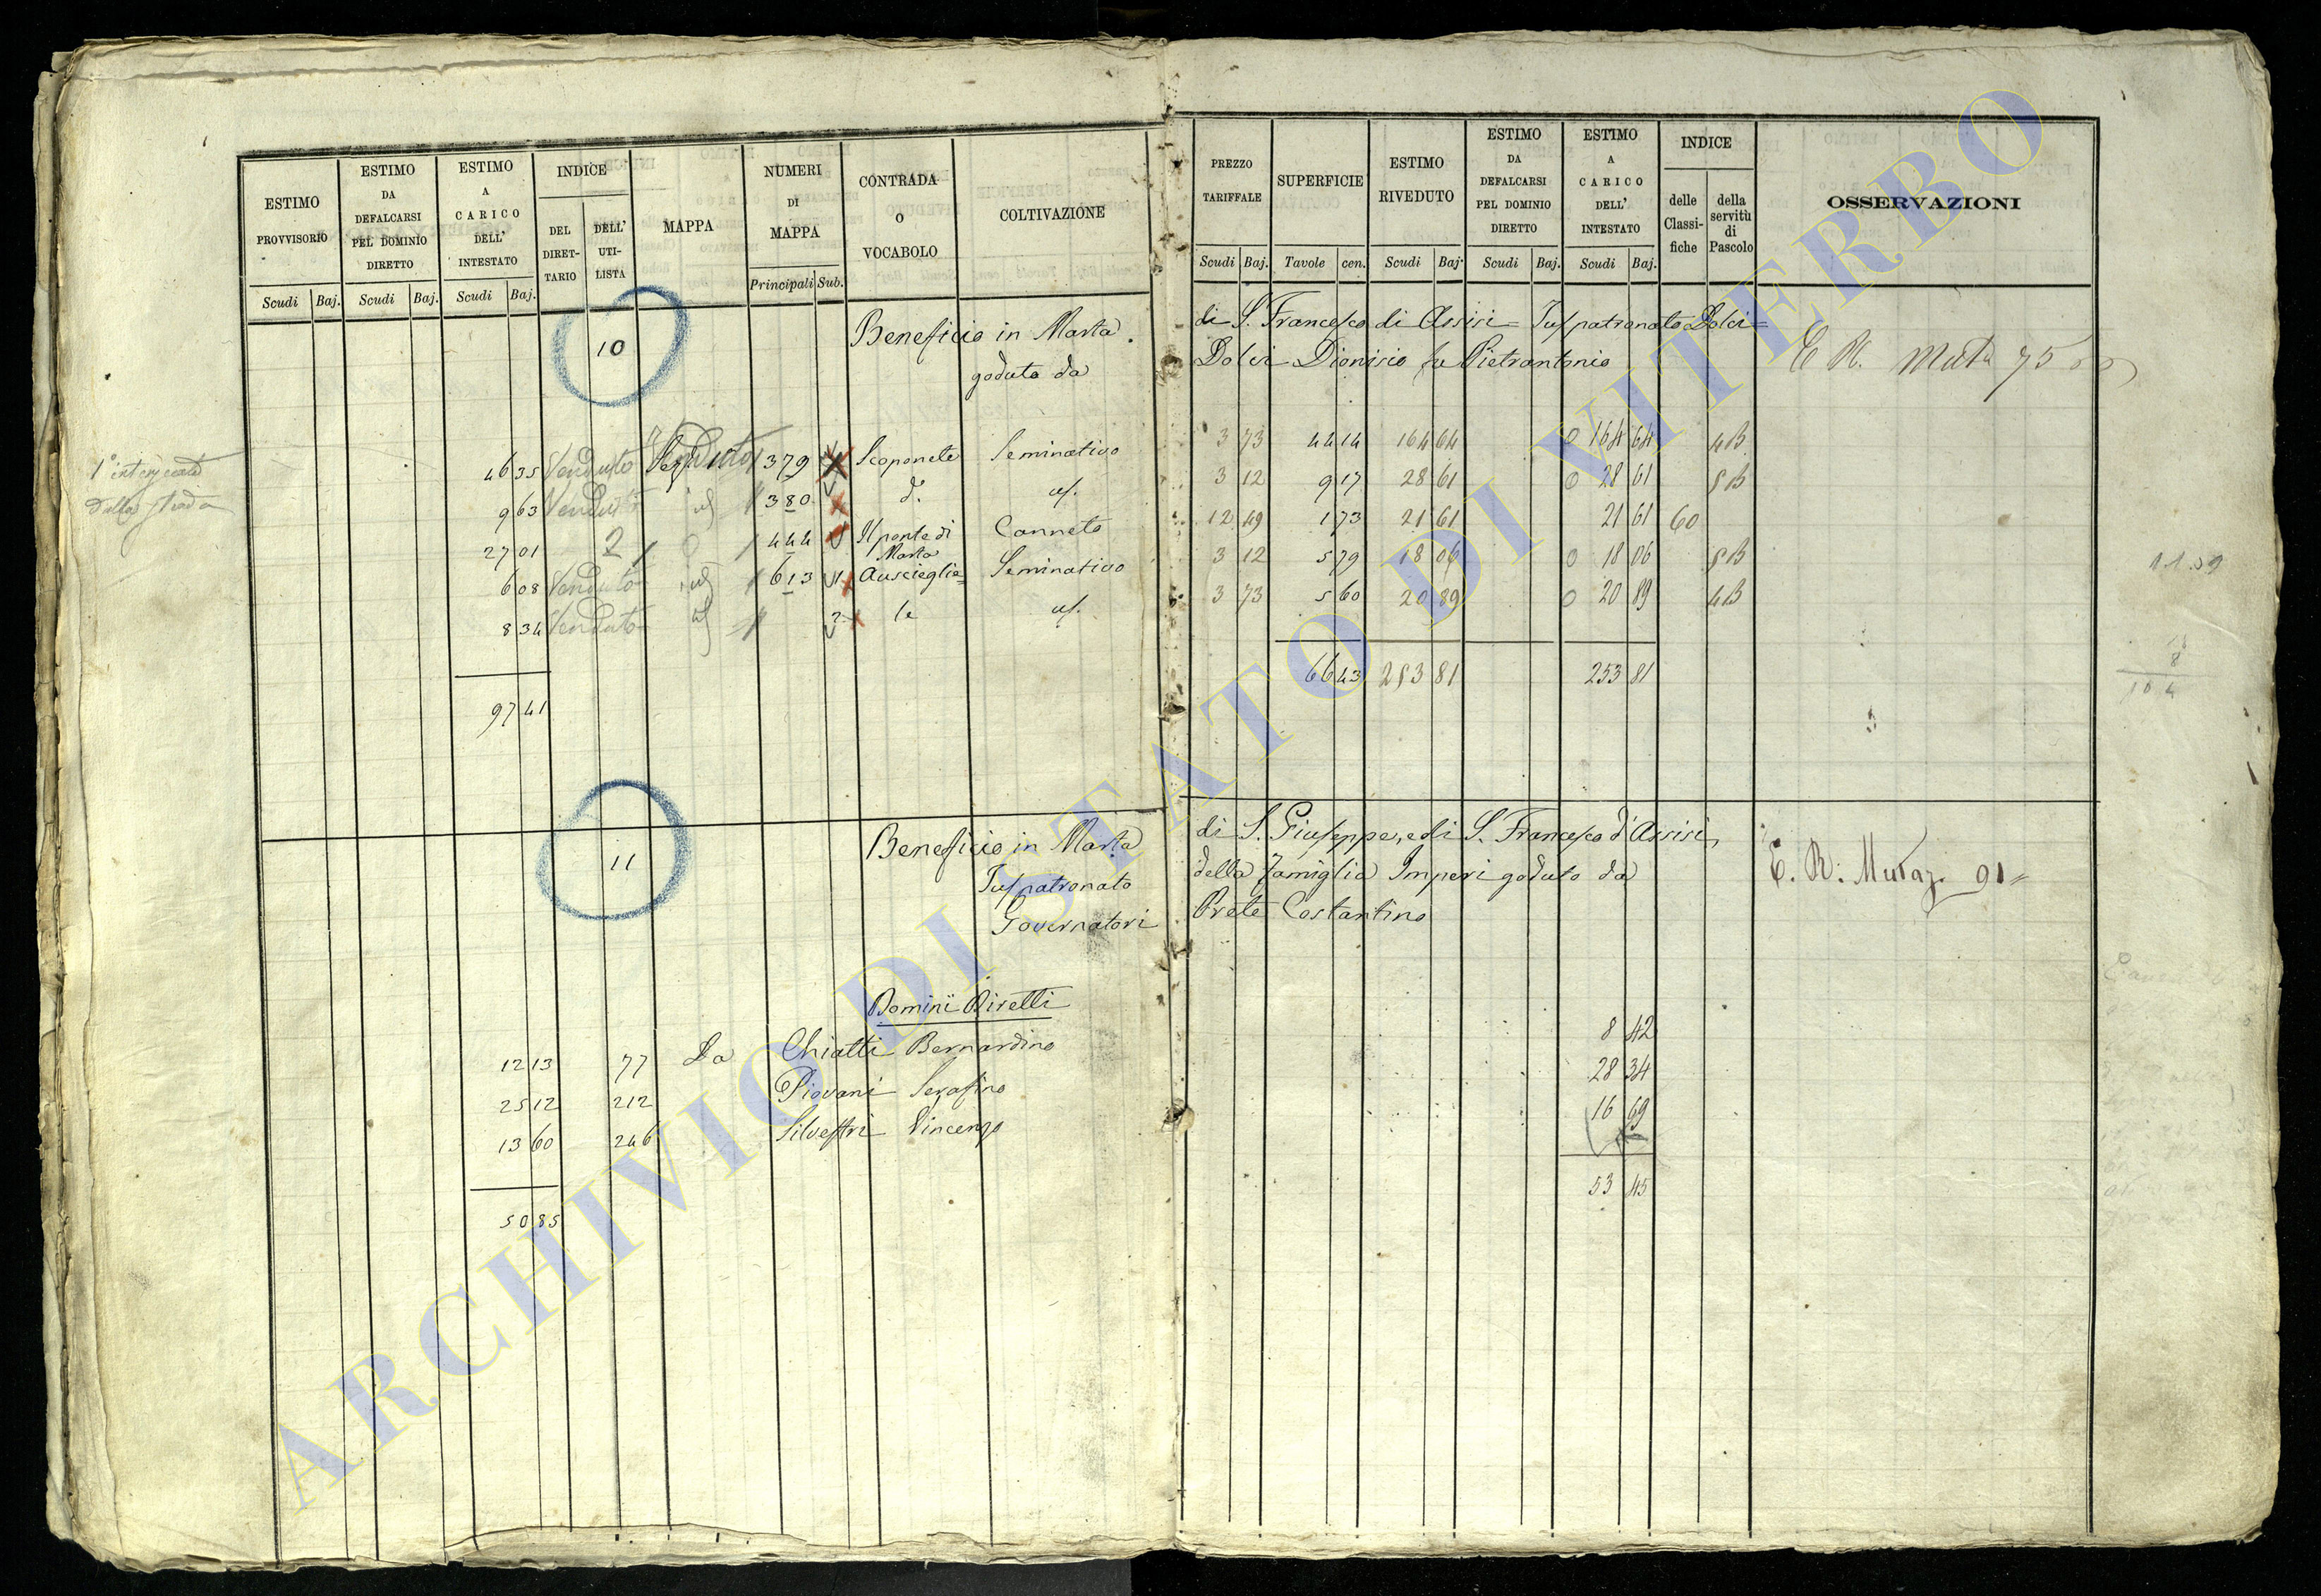 ESTIMO PROVVISORIO
ESTIMO DA DEFALCARSI PEL DOMINIO DIRETTO
ESTIMO A CARICO DELL' INTESTATO
INDICE
DEL DIRET-TARIO
DELL' UTI-LISTA
MAPPA
NUMERI DI MAPPA
CONTRADA O VOCABOLO
COLTIVAZIONE
PREZZO TARIFFALE
SUPERFICIE
ESTIMO RIVEDUTO
ESTIMO DA DEFALCARSI PEL DOMINIO DIRETTO
ESTIMO A CARICO DELL' INTESTATO
INDICE
delle Classi-fiche
della servitù di Pascolo
OSSERVAZIONI
Scudi Baj. Scudi Baj. Scudi Baj. Principali Sub.
Scudi Baj. Tavole cen. Scudi Baj. Scudi Baj. Scudi Baj.
10 Beneficio in Marta di S. Francesco di Assisi = Juspatronato Dolci =
goduto da Dolci Dionisio fu Pietrantonio
46 35 Venduto Venduto 379 Scoponete Seminativo 3 73 44 14 164 64 0 164 64 4B
9 63 Venduto 380 d. 3 12 9 17 28 61 0 28 61 5B
27 01 2 444 Il ponte di Marta Canneto 12 49 1 73 21 61 21 61 60
6 08 Venduto 613 1 Auscieglie= Seminativo 3 12 5 79 18 06 0 18 06 5B
8 34 Venduto 2 le 3 73 5 60 20 89 0 20 89 4B
97 41 66 43 253 81 253 81
della strada
11 Beneficio in Marta di S. Giuseppe, e di S. Francesco d'Assisi,
Juspatronato della famiglia Imperi goduto da
Governatori Prete Costantino
E. R. Mutaz. 91
Dominî Diretti
12 13 77 Da Chiatti Bernardino 8 42
25 12 212 Piovani Serafino 28 34
13 60 246 Silvestri Vincenzo 16 69
50 85 53 45
ARCHIVIO DI STATO DI VITERBO